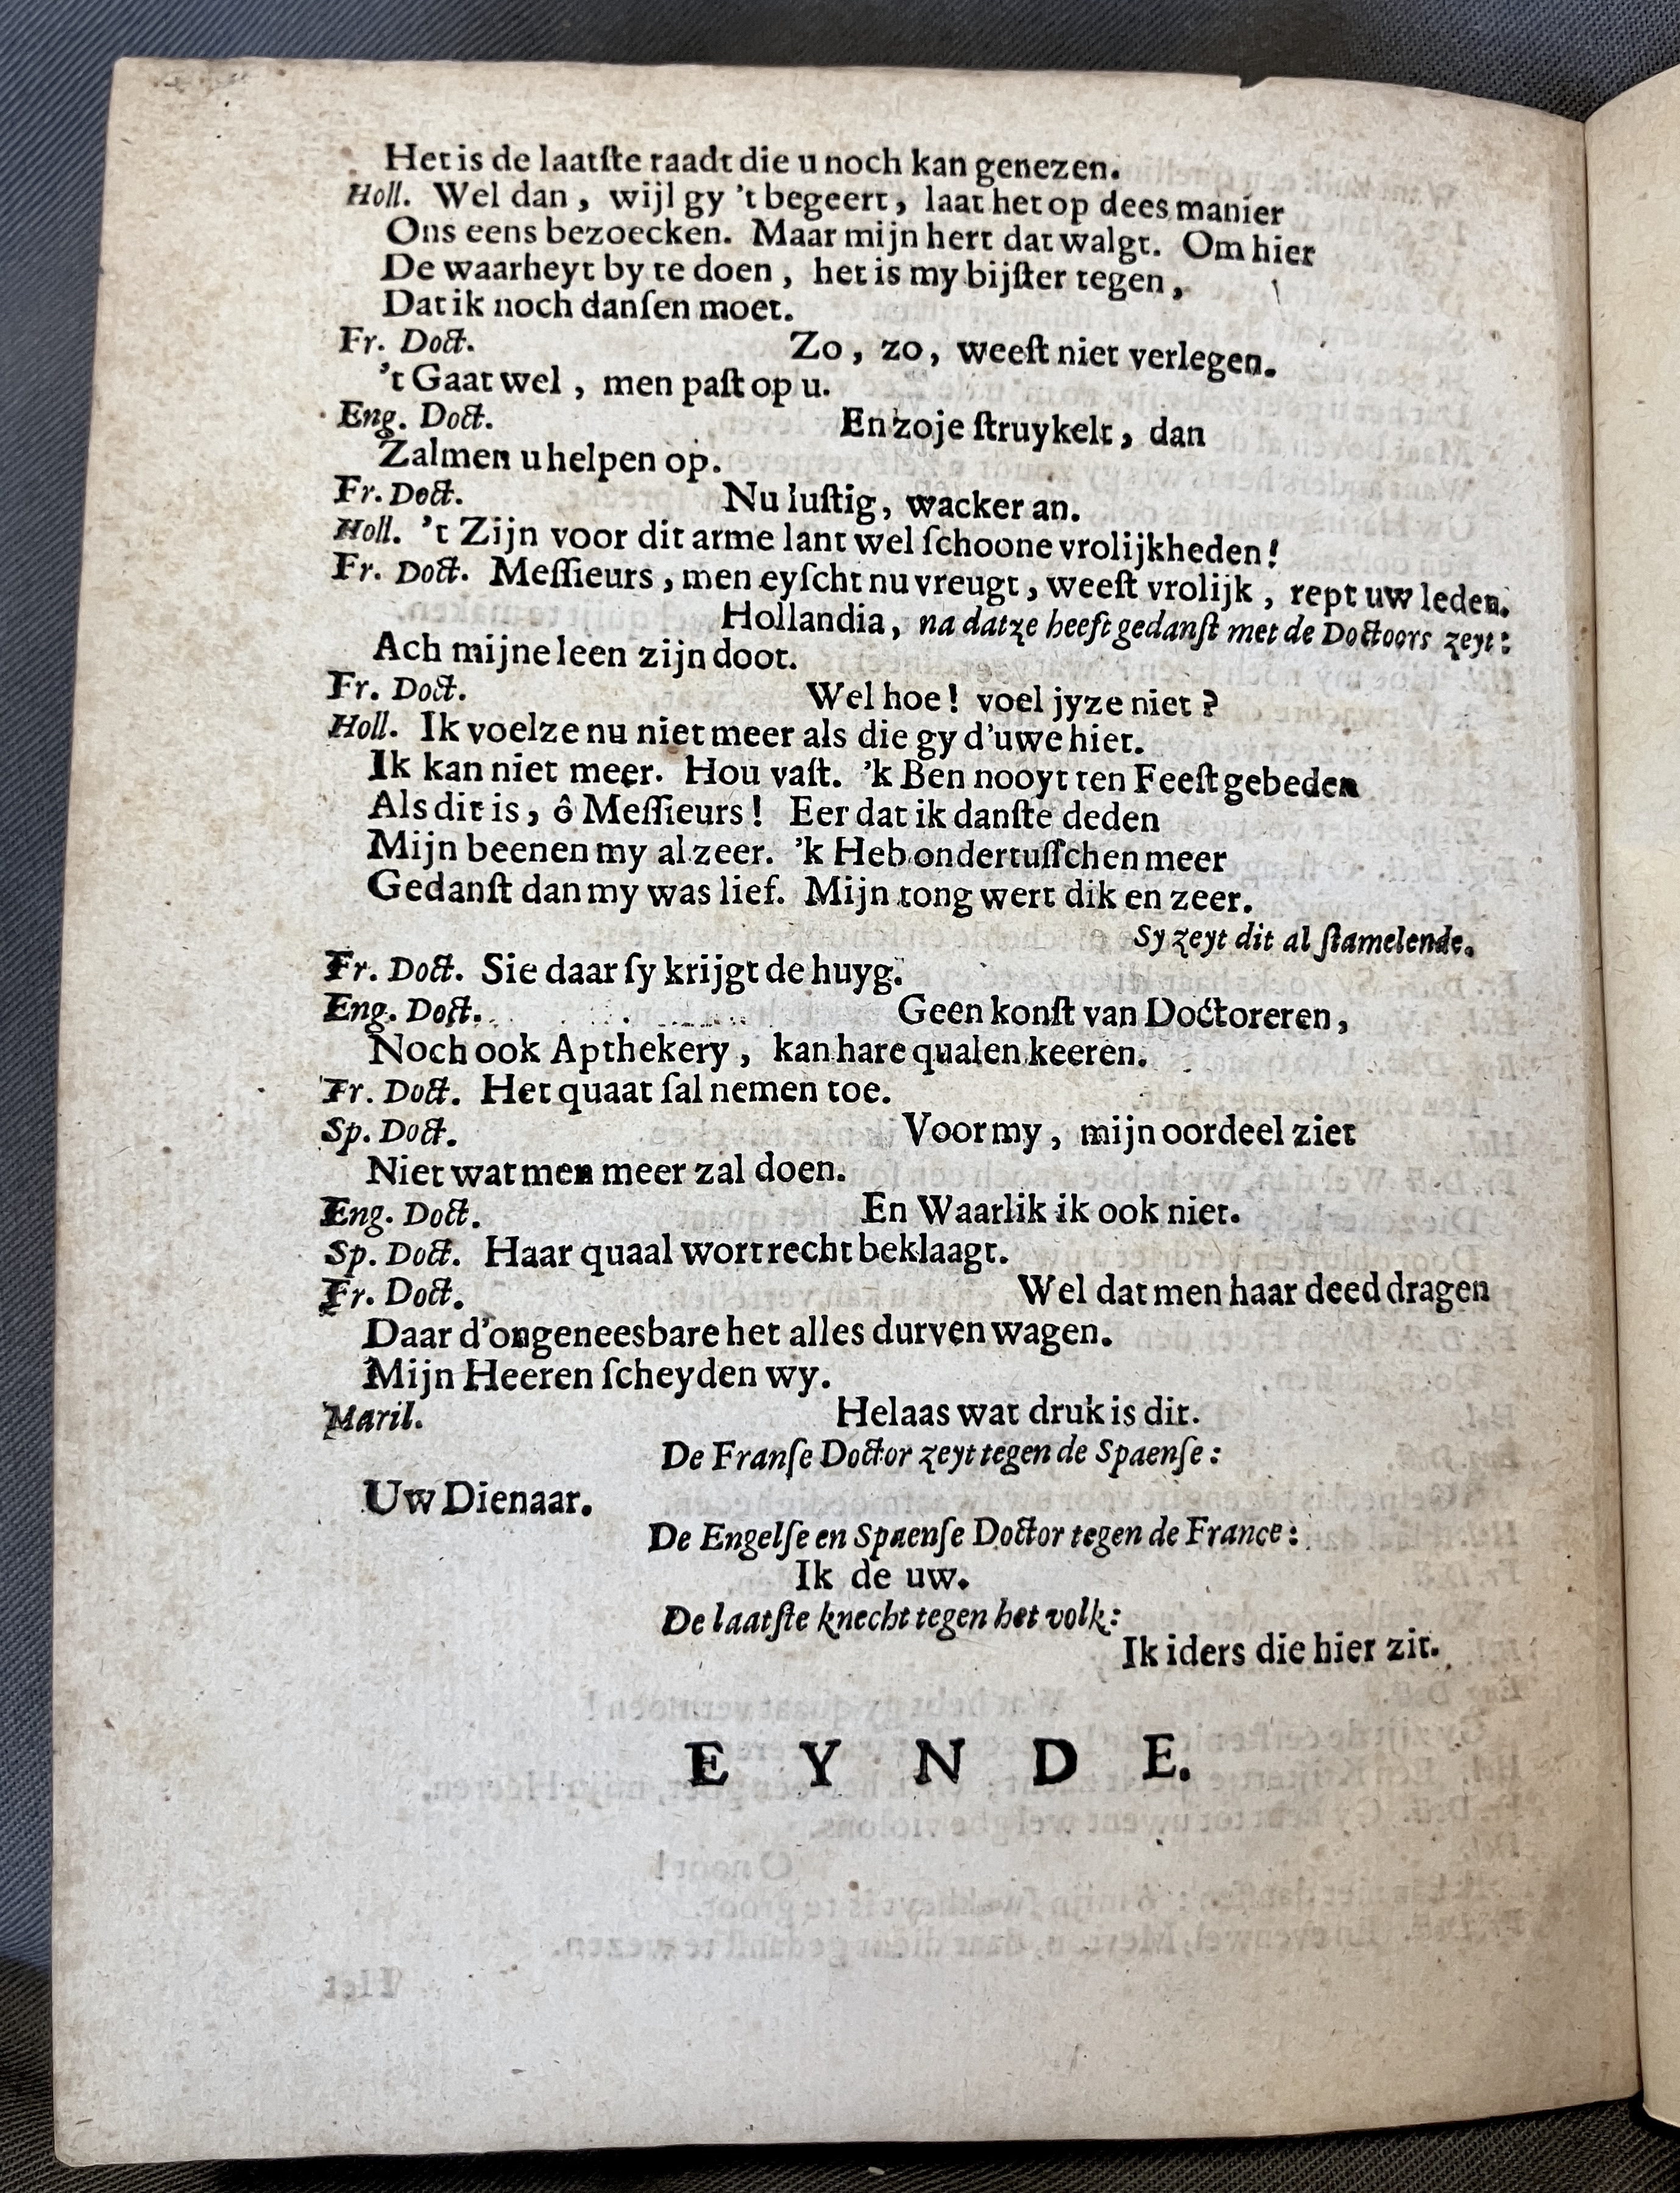 Het is de laatſte raadt die u noch kan genezen.
Holl. Wel dan, wijl gy 't begeert, laat het op dees manier
Ons eens bezoecken. Maar mijn hert dat walgt. Om hier
De waarheyt by te doen, het is my bijſter tegen,
Dat ik noch danſen moet.
Fr. Doct. Zo, zo, weeſt niet verlegen.
't Gaat wel, men paſt op u.
Eng. Doct. En zo je ſtruykelt, dan
Zalmen u helpen op.
Fr. Doct. Nu luſtig, wacker an.
Holl. 't Zijn voor dit arme lant wel ſchoone vrolijkheden!
Fr. Doct. Meſſieurs, men eyſcht nu vreugt, weeſt vrolijk, rept uw leden.
Hollandia, na datze heeft gedanſt met de Doctoors zeyt:
Ach mijne leen zijn doot.
Fr. Doct. Wel hoe! voel jyze niet?
Holl. Ik voelze nu niet meer als die gy d'uwe hiet.
Ik kan niet meer. Hou vaſt. 'k Ben nooyt ten Feeſt gebeden
Als dit is, ô Meſſieurs! Eer dat ik danſte deden
Mijn beenen my al zeer. 'k Heb ondertuſſchen meer
Gedanſt dan my was lief. Mijn tong wert dik en zeer.
Sy zeyt dit al ſtamelende.
Fr. Doct. Sie daar ſy krijgt de huyg.
Eng. Doct. Geen konſt van Doctoreren,
Noch ook Apthekery, kan hare qualen keeren.
Fr. Doct. Het quaat ſal nemen toe.
Sp. Doct. Voor my, mijn oordeel ziet
Niet wat men meer zal doen.
Eng. Doct. En Waarlik ik ook niet.
Sp. Doct. Haar quaal wort recht beklaagt.
Fr. Doct. Wel dat men haar deed dragen
Daar d'ongeneesbare het alles durven wagen.
Mijn Heeren ſcheyden wy.
Maril. Helaas wat druk is dit.
De Franſe Doctor zeyt tegen de Spaenſe:
Uw Dienaar.
De Engelſe en Spaenſe Doctor tegen de France:
Ik de uw.
De laatſte knecht tegen het volk:
Ik iders die hier zit.
E Y N D E.